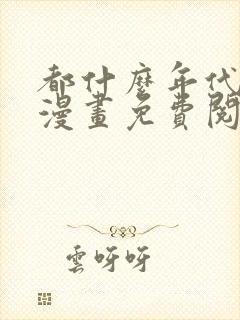 都什麼年代
漫畫免費閱
雲呀呀